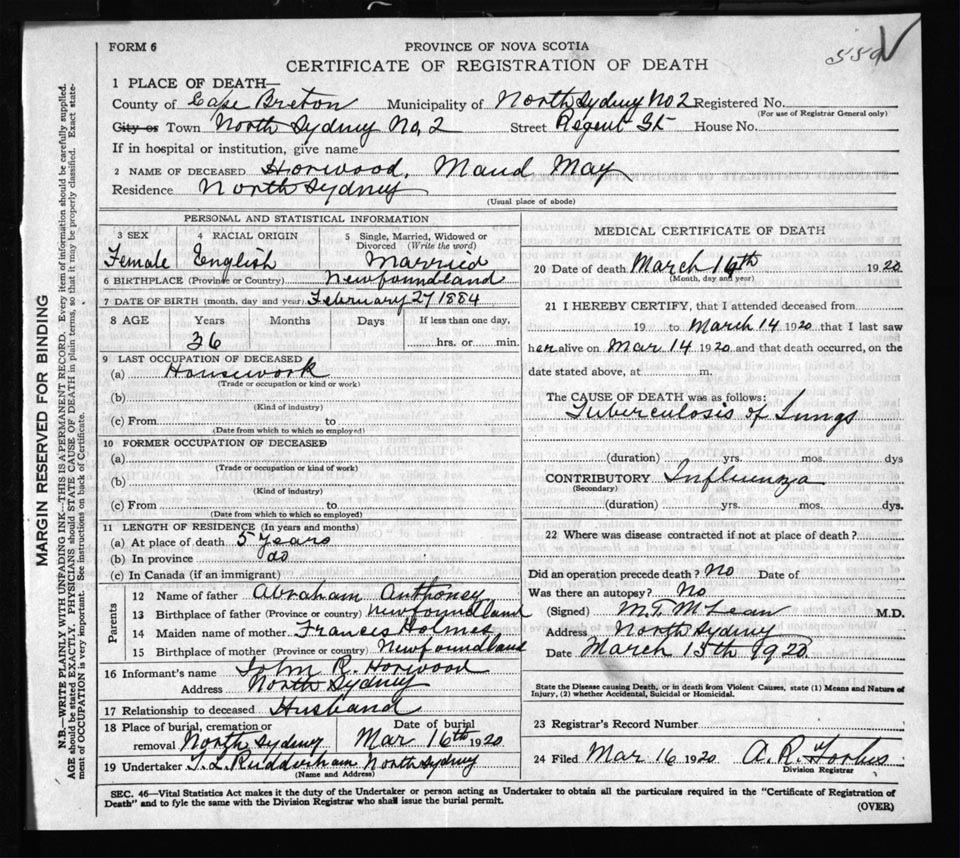 FORM 6
PROVINCE OF NOVA SCOTIA
559 V
CERTIFICATE OF REGISTRATION OF DEATH
1 PLACE OF DEATH—
County of Cape Breton Municipality of North Sydney No 2 Registered No.
(For use of Registrar General only)
City or Town North Sydney No, 2 Street Regent St House No.
If in hospital or institution, give name
2 NAME OF DECEASED Horwood, Maud May
Residence North Sydney
(Usual place of abode)
PERSONAL AND STATISTICAL INFORMATION
3 SEX 4 RACIAL ORIGIN 5 Single, Married, Widowed or
Divorced (Write the word)
Female English Married
6 BIRTHPLACE (Province or Country) Newfoundland
7 DATE OF BIRTH (month, day and year) February 27 1884
8 AGE Years Months Days If less than one day,
36 hrs. or min.
9 LAST OCCUPATION OF DECEASED
(a) Housework
(Trade or occupation or kind or work)
(b)
(Kind of industry)
(c) From to
(Date from which to which so employed)
10 FORMER OCCUPATION OF DECEASED
(a)
(Trade or occupation or kind of work)
(b)
(Kind of industry)
(c) From to
(Date from which to which so employed)
11 LENGTH OF RESIDENCE (In years and months)
(a) At place of death 5 years
(b) In province do
(c) In Canada (if an immigrant)
Parents
12 Name of father Abraham Anthoney
13 Birthplace of father (Province or country) Newfoundland
14 Maiden name of mother Frances Holmes
15 Birthplace of mother (Province or country) Newfoundland
16 Informant's name John R. Horwood
Address North Sydney
17 Relationship to deceased Husband
18 Place of burial, cremation or Date of burial
removal North Sydney Mar 16th 1920
19 Undertaker T. L. Rudderham North Sydney
(Name and Address)
MEDICAL CERTIFICATE OF DEATH
20 Date of death March 14th 1920
(Month, day and year)
21 I HEREBY CERTIFY, that I attended deceased from
19 to March 14 1920 that I last saw
her alive on Mar 14 1920 and that death occurred, on the
date stated above, at m.
The CAUSE OF DEATH was as follows:
Tuberculosis of Lungs
(duration) yrs. mos. dys
CONTRIBUTORY Influenza
(Secondary)
(duration) yrs. mos. dys.
22 Where was disease contracted if not at place of death?
Did an operation precede death? No Date of
Was there an autopsy? No
(Signed) M. T. McLean M.D.
Address North Sydney
Date March 15th 1920
State the Disease causing Death, or in death from Violent Causes, state (1) Means and Nature of
Injury, (2) whether Accidental, Suicidal or Homicidal.
23 Registrar's Record Number
24 Filed Mar 16 1920 A. R. Forbes
Division Registrar
SEC. 46—Vital Statistics Act makes it the duty of the Undertaker or person acting as Undertaker to obtain all the particulars required in the "Certificate of Registration of
Death" and to fyle the same with the Division Registrar who shall issue the burial permit.
(OVER)
MARGIN RESERVED FOR BINDING
N.B.—WRITE PLAINLY WITH UNFADING INK—THIS IS A PERMANENT RECORD. Every item of information should be carefully supplied.
AGE should be stated EXACTLY. PHYSICIANS should STATE CAUSE OF DEATH in plain terms, so that it may be properly classified. Exact state-
ment of OCCUPATION is very important. See instructions on back of Certificate.